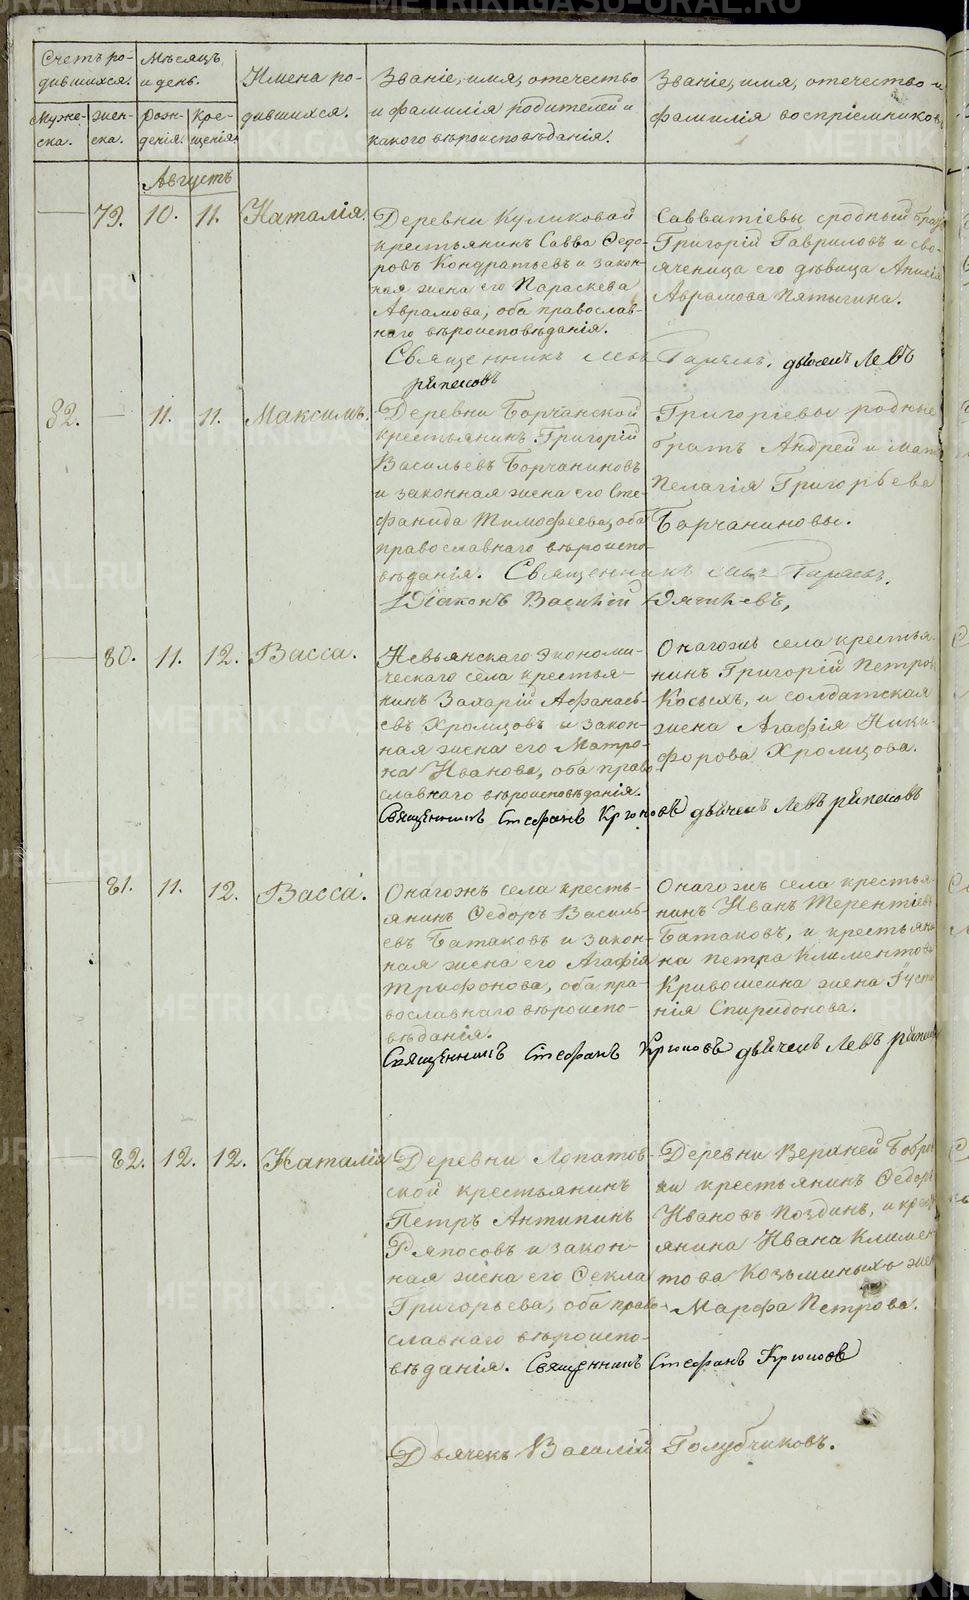 METRIKI.GASO-URAL.RU
Счетъ ро-
дившихся.
Мѣсяцъ
и день.
Имена ро-
дившихся.
Званіе, имя, отечество
и фамилія родителей и
какого вѣроисповѣданія.
Званіе, имя, отечество и
фамилія воспріемниковъ
Муже-
ска.
Жен-
ска.
Рож-
денія.
Кре-
щенія.
Августъ
79. 10. 11. Наталія.
Деревни Куликовой
крестьянинъ Савва Ѳедо-
ровъ Кондратьевъ и закон-
ная жена его Параскева
Аврамова, оба православ-
наго вѣроисповѣданія.
Савватіевы сродный братъ
Григорій Гавриловъ и сво-
яченица его дѣвица Анисія
Аврамова Пятыгина.
Священникъ Левъ дьячекъ Левъ
82. 11. 11. Максимъ.
Деревни Борчанской
крестьянинъ Григорій
Васильевъ Борчаниновъ
и законная жена его Сте-
фанида Тимофеева, оба
православнаго вѣроиспо-
вѣданія. Священникъ Левъ
Григоріевы родные
братъ Андрей и мать
Пелагія Григорьева
Борчаниновы.
Діаконъ Василій
80. 11. 12. Васса.
Невьянскаго экономи-
ческаго села крестья-
нинъ Захарій Афанась-
евъ Хромцовъ и закон-
ная жена его Матро-
на Иванова, оба право-
славнаго вѣроисповѣданія.
Онагожъ села крестья-
нинъ Григорій Петровъ
Косыхъ, и солдатская
жена Агафія Ники-
форова Хромцова.
Священникъ Стефанъ Крюковъ дьячекъ Левъ
81. 11. 12. Васса.
Онагожъ села кресть-
янинъ Ѳедоръ Василь-
евъ Батаковъ и закон-
ная жена его Агафія
Трифонова, оба пра-
вославнаго вѣроиспо-
вѣданія.
Онагожъ села крестья-
нинъ Иванъ Терентіевъ
Батаковъ, и крестьяни-
на Петра Климентова
Кривошеина жена Густи-
нія Спиридонова.
Священникъ Стефанъ Крюковъ дьячекъ Левъ
82. 12. 12. Наталія
Деревни Лопатов-
ской крестьянинъ
Петръ Антипинъ
Ряпосовъ и закон-
ная жена его Ѳекла
Григорьева, оба право-
славнаго вѣроиспо-
вѣданія. Священникъ Стефанъ Крюковъ
Деревни Верхней Бобров-
ки крестьянинъ Ѳедоръ
Ивановъ Поздинъ, и кресть-
янина Ивана Климен-
това Козьминыхъ жена
Марфа Петрова.
Дьячекъ Василій Голубчиковъ.